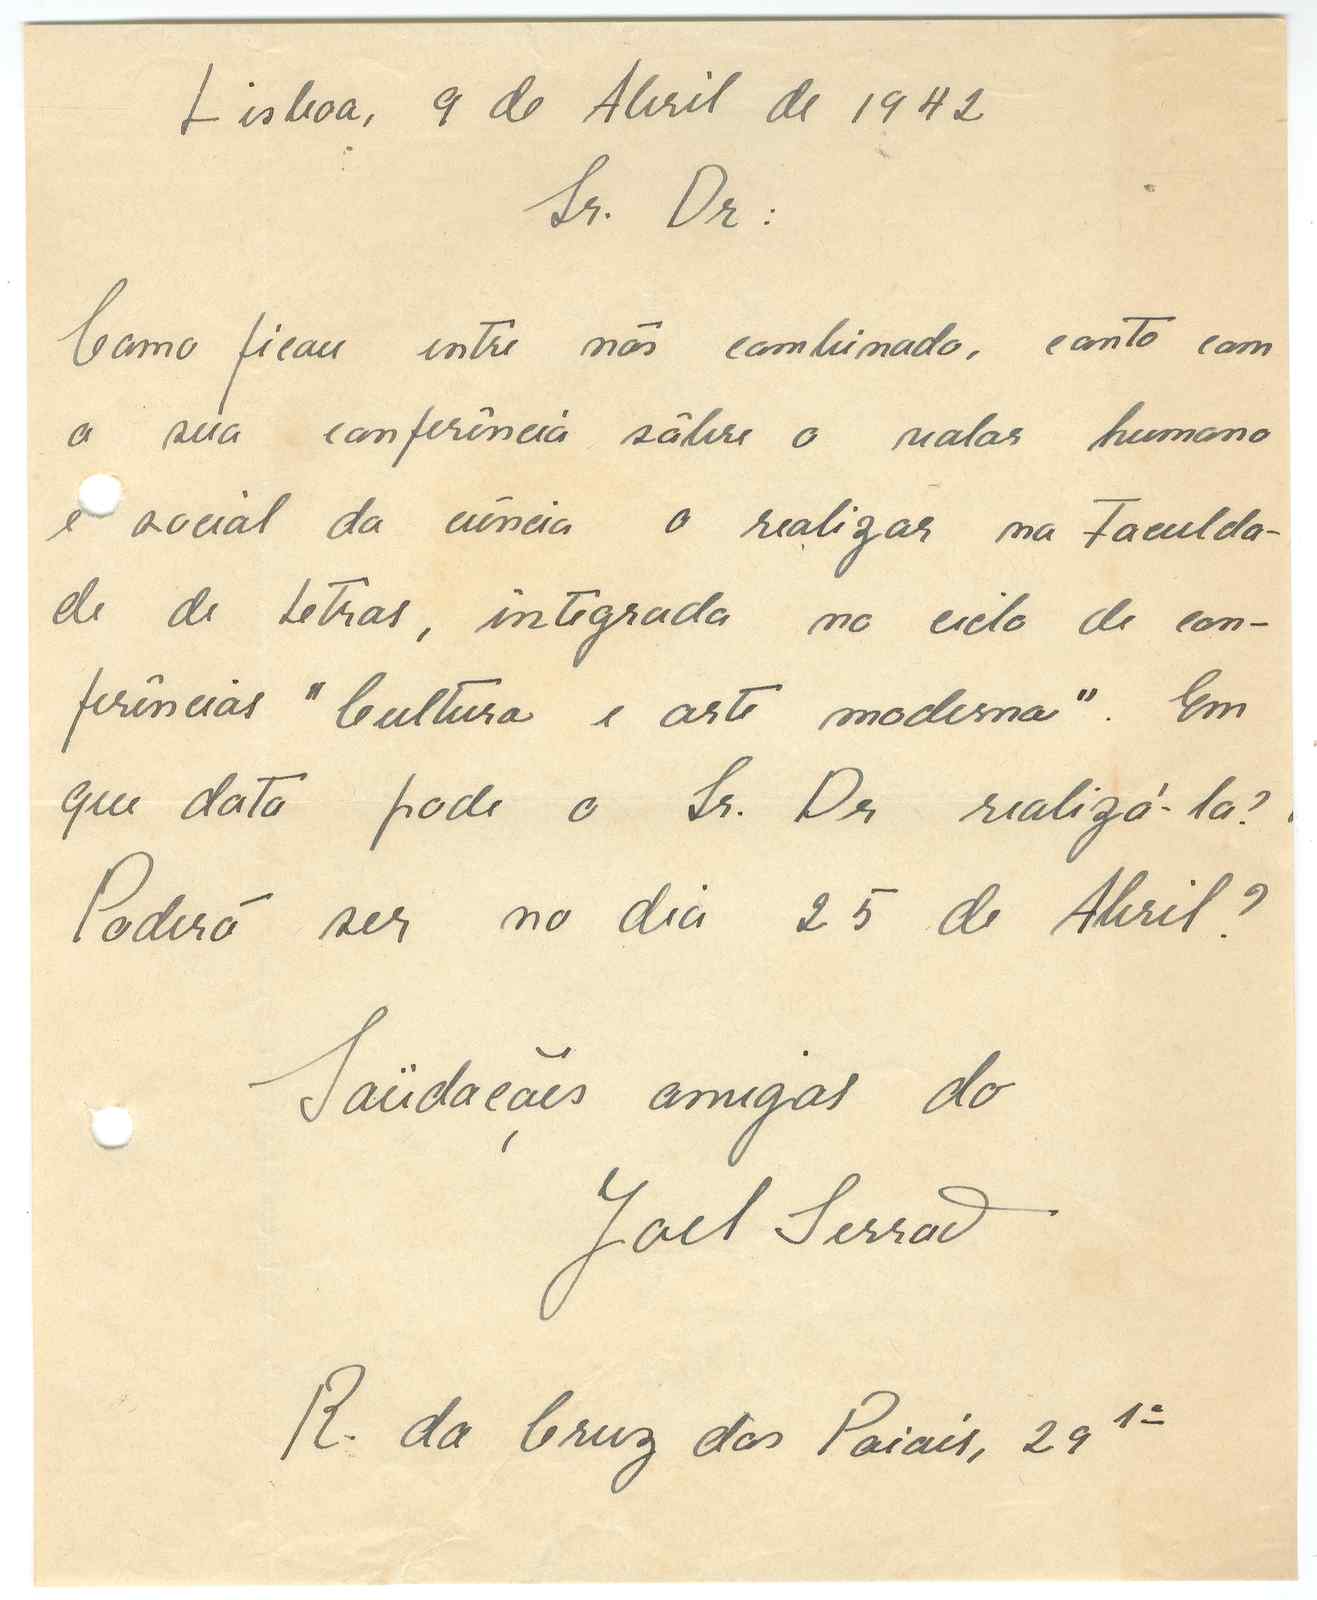 Lisboa, 9 de Abril de 1942
Sr. Dr:
Como ficou entre nós combinado, conto com
a sua conferência sôbre o valor humano
e social da ciência a realizar na Faculda-
de de Letras, integrada no ciclo de con-
ferências "Cultura e arte moderna". Em
que data pode o Sr. Dr realizá-la?
Poderá ser no dia 25 de Abril?
Saüdações amigas do
Joel Serrão
R. da Cruz dos Poiais, 29 1º